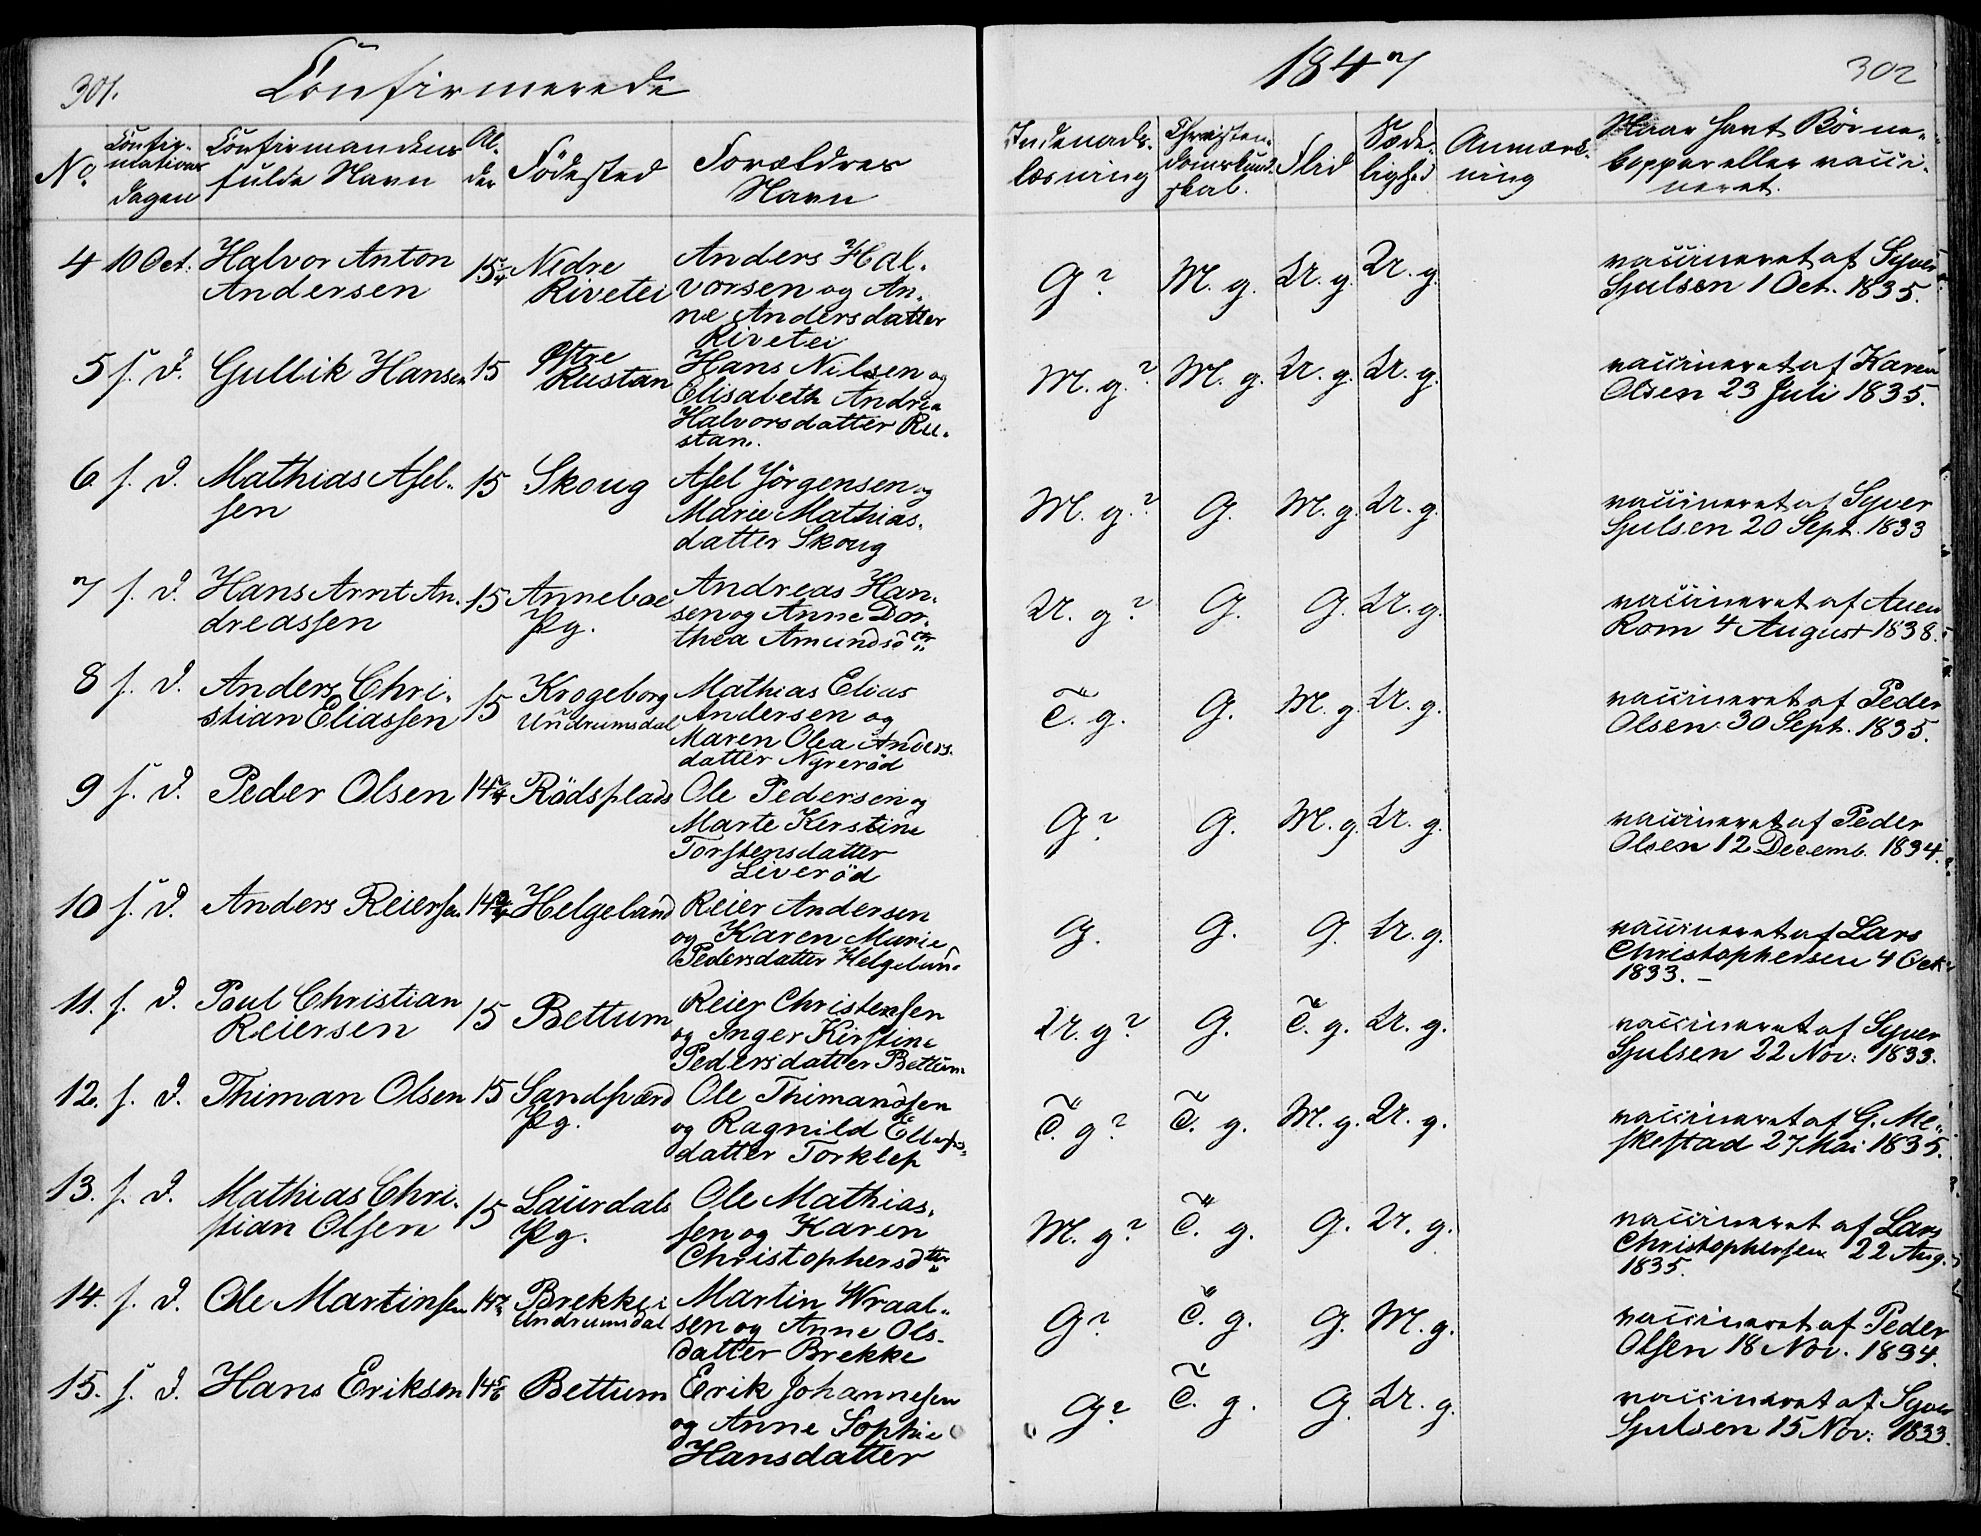 301.
Confirmerede
1847
302
No
Confir-
mations
dagen
Confirmandens
fulde Navn
Al-
der
Födested
Forældres
Navn
Indenads-
læsning
Christen-
domskund-
skab.
Flid
Sæde-
lighed
Anmærk-
ning
Naar havt Börne-
kopper eller vacci-
neret.
4 10 Oct. Halvor Anton
Andersen
15 1/4 Nedre
Rivetei
Anders Hal-
vorsen og An-
ne Andersdatter
Rivetei
G? M. g. Ur. g. Ur. g.
vaccineret af Syver
Gulsen 1 Oct. 1835.
5 s. d. Gullik Hansen 15 Östre
Rustan
Hans Nilsen og
Elisabeth Andrea
Halvorsdatter Ru-
stan.
M. g.? M. g. Ur. g. Ur. g.
vaccineret af Karen
Olsen 23 Juli 1835.
6 s. d. Mathias Asel-
sen
15 Skoug
Asel Jörgensen og
Marie Mathias-
datter Skoug
M. g.? G. M. g. Ur. g.
vaccineret af Syver
Gulsen 20 Sept. 1833
7 s. d. Hans Arnt An-
dreassen
15 Anneboe
Pg.
Andreas Han-
sen og Anne Dor-
thea Amundsdtr
Ur. g? G. G. Ur. g.
vaccineret af
Rom 4 August 1838.
8 s. d. Anders Chri-
stian Eliassen
15 Krogeborg
Undrumsdal
Mathias Elias
Andersen og
Maren Olea Anders-
datter Nyreröd
T. g. G. M. g. Ur. g.
vaccineret af Peder
Olsen 30 Sept. 1835.
9 s. d. Peder Olsen 14 3/4 Rödsplads
Ole Pedersen og
Marte Kerstine
Torstensdatter
Liveröd
G? G. M. g. Ur. g.
vaccineret af Peder
Olsen 12 Decemb. 1834.
10 s. d. Anders Reiersen 14 3/4 Helgeland
Reier Andersen
og Karen Marie
Pedersdatter Helgelan-
G. G. G. Ur. g.
vaccineret af Lars
Christophersen 4 Oct.
1833. -
11. s. d. Poul Christian
Reiersen
15 Bettum
Reier Christensen
og Inger Kirstine
Pedersdatter Bettum
Ur. g? G. T. g. Ur. g.
vaccineret af Syver
Gulsen 22 Nov: 1833.
12. s. d. Thiman Olsen 15 Sandsværd
Pg.
Ole Thimandsen
og Ragnild Ellefs-
datter Torklep
T. g? T. g. M. g. Ur. g.
vaccineret af G. Me-
skestad 27 Mai 1835.
13. s. d. Mathias Chri-
stian Olsen
15 Laurdals
Pg.
Ole Mathias-
sen og Karen
Christophersdtter
M. g? T. g. G. Ur. g.
vaccineret af Lars
Christophersen 22 Aug.
1835.
14. s. d. Ole Martinsen 14 1/2 Brekke i
Undrumsdal
Martin Wraal-
sen og Anne Ols-
datter Brekke
G? T. g. G. M. g.
vaccineret af Peder
Olsen 18 Nov. 1834.
15. s. d. Hans Eriksen 14 5/6 Bettum
Erik Johannesen
og Anne Sophie
Hansdatter
G? T. g. G. Ur. g.
vaccineret af Syver
Gulsen 15 Nov: 1833.